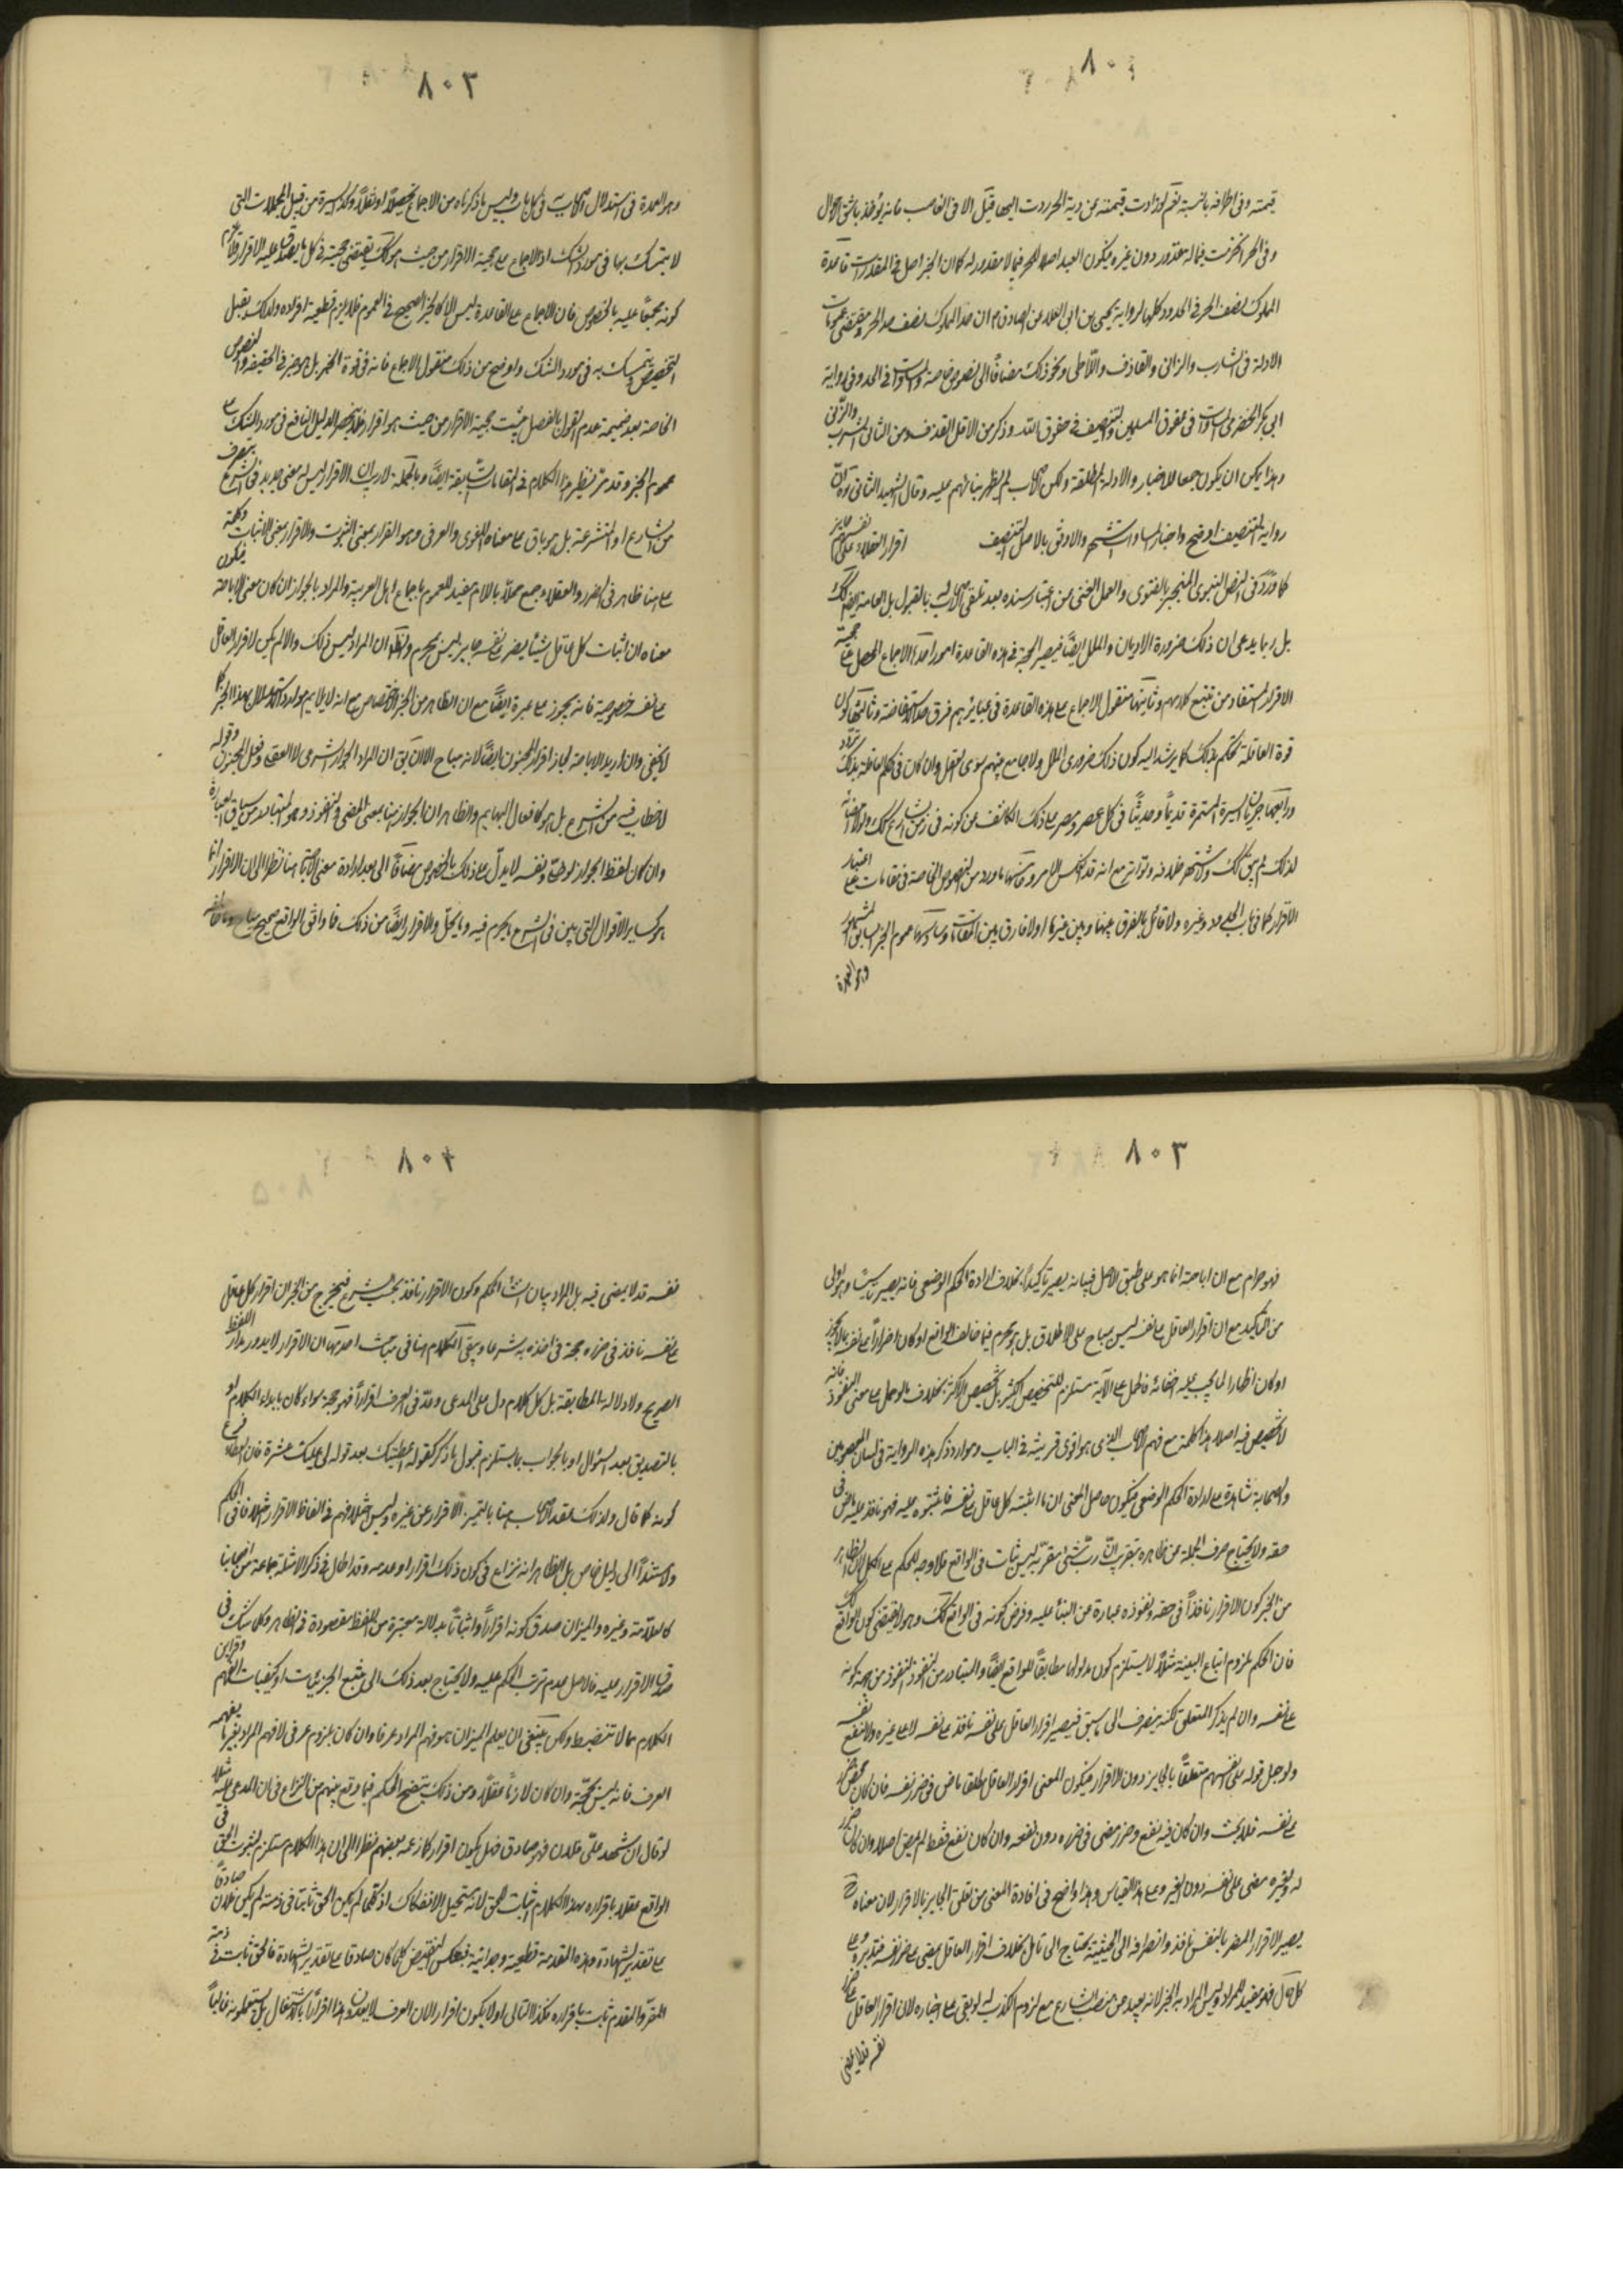 ٨٠١
قيمته وفي اطرافه بالنسبة نعم لو زادت قيمته عن دية الحر ردت اليها قيل الا في الغاصب فانه يؤخذ باشق الاحوال
وفي الحر انحزت فيما له مقدر دون غيره فيكون العبد اصلا للحر فيما لا مقدر له كما ان الحر اصل في المقدرات قاعدة
المملوك نصف الحر في الحدود كلها لرواية يحيى بن ابي العلاء عن الصادق ع ان حد المملوك نصف حد الحر ومقتضى عمومات
الادلة في الشارب والزاني والقاذف واللاطي ونحو ذلك مضافا الى نصوص خاصة والمساواة في الحد وفي رواية
ابي بكر الحضرمي المساواة في حقوق المسلمين والتنصيف في حقوق الله وذكر من الاول القذف ومن الثاني الشرب والزنى
وهذا يمكن ان يكون جمعا للاخبار والادلة المطلقة ولكن الاصحاب لم يظهر بنائهم عليه وقال الشهيد الثاني ره ان
رواية التنصيف اوضح واخبار المساواة اشهر والاوفق بالاصل التنصيف اقرار العقلاء على انفسهم جايز
كما ورد في النص النبوي المنجبر بالفتوى والعمل الغني عن اعتبار سنده بعد تلقي الاصحاب له بالقبول بل العامة ايضا كك
بل ربما يدعى ان ذلك ضرورة الاديان والملل ايضا فيصير الحجة في هذه القاعدة امور احدها الاجماع المحصل على حجية
الاقرار المستفاد من تتبع كلامهم وثانيها منقول الاجماع على هذه القاعدة في عبائرهم فرق حد الاستفاضة وثالثها كون
قوة العاقلة تحكم بذلك كما يرشد اليه كون ذلك ضروري الملل ولا جامع بينهم سوى العقل وان كان في حكم العاقلة بذلك تردد
ورابعها جريان السيرة المستمرة قديما وحديثا في كل عصر ومصر على ذلك الكاشف عن كونه في زمن الشارع كك ولولا امضائه
لذلك لم يبق كك ولاشتهر خلافه وتواتر مع انه قد انعكس الامر وخامسها ما ورد من النصوص الخاصة في مقامات على اعتبار
الاقرار كما في باب الحلي ولاد وغيره ولا قائل بالفرق بينها وبين غيرها اولا فارق بين المقامات وسادسها عموم الخبر السابق المشهور
وهو العمدة
٨٠٢
وهو العمدة في استدلال الاصحاب في كل باب وليس ما ذكرناه من الاجماع تحصيلا او نقلا وكذا السيرة من قبيل المجملات التي
لا يتمسك بها في مورد الشك اذ الاجماع على حجية الاقرار من حيث هو كك يقتضي حجيته في كل ما يصدق عليه الاقرار ولا يلزم
كونه مجمعا عليه بالخصوص فان الاجماع على القاعدة ليس الا كالخبر الصحيح في العموم فلا يلزم قطعية افراده ولذلك يقبل
التخصيص ويتمسك به في مورد الشك واوضح من ذلك منقول الاجماع فانه في قوة الخبر بل هو خبر في الحقيقة والنصوص
الخاصة بعد ضميمة عدم القول بالفصل يثبت حجية الاقرار من حيث هو اقرار فلا ينحصر الدليل النافع في مورد الشك على
عموم الخبر وقد مر نظير هذا الكلام في المقامات السابقة ايضا وبالجملة لا ريب ان الاقرار ليس له معنى جديد في الشرع بتصرف
من الشارع او المتشرعة بل هو باق على معناه اللغوي والعرفي وهو القرار بمعنى الثبوت والاقرار بمعنى الاثبات وكلمة
على هنا ظاهر في الضرر والعقلاء جمع محلى باللام مفيد للعموم باجماع اهل العربية والمراد بالجواز ان كان معنى الاباحة فيكون
معناه ان اثبات كل عاقل شيئا يضر على نفسه جايز ليس بمحرم والظ ان المراد ليس ذلك والا لم يكن لاقرار العاقل
على نفسه خصوصية فانه يجوز على غيره ايضا مع ان الظاهر من الخبر الاختصاص مع انه لا يلايم موارد استدلال بهذا الخبر كما
لا يخفى وان اريد الاباحة لجاز اقرار المجنون ايضا لانه مباح الا ان يق ان المراد الجواز الشرعي لا العقلي وفعل المجنون وقوله
لا خطاب فيه من الشرع بل هو كافعال البهايم والظاهر ان الجواز هنا بمعنى المضي والنفوذ وهو المتبادر من سياق العبارة
وان كان لفظ الجواز لو خلي ونفسه لا يدل على ذلك بالخصوص مضافا الى بعد ارادة معنى الاباحة هنا نظرا الى ان الاقرار انما
هو كساير الاقوال التي بين في الشرع ما يحرم فيه وما يحل والاقرار ايضا من ذلك فما وافق الواقع صحيح مباح وما خالفه
٨٠٣
فهو حرام مع ان اباحته انما هو على طبق الاصل فبيانه يصير تأكيدا بخلاف ارادة الحكم الوضعي فانه يصير تأسيسا وهو اولى
من التأكيد مع ان اقرار العاقل على نفسه ليس بمباح على الاطلاق بل هو محرم فيما خالف الواقع او كان اضرارا على نفسه بما لا يجوز
او كان اظهارا لما يجب عليه اخفائه فالحمل على الآية مستلزم للتخصيص الكثير بل تخصيص الاكثر بخلاف ما لو حمل على معنى النفوذ فانه
لا تخصيص فيه اصلا هذا كله مع فهم الاصحاب الذي هو اقوى قرينة في الباب وموارد ذكر هذه الرواية في لسان المعصومين
والصحابة شاهدة على ارادة الحكم الوضعي فيكون حاصل المعنى ان ما اثبته كل عاقل على نفسه فما يثبتوه عليه فهو نافذ عليه ماض في
حقه ولا يحتاج صرف الجملة عن ظاهره بتقريب ان رب شئ مقر به ليس ثابت في الواقع فلا وجه للحكم على الكل لان الظاهر
من الخبر كون الاقرار نافذا في حقه ونفوذه عبارة عن البناء عليه وفرض كونه في الواقع كك وهو لا يقتضي كون الواقع كك
فان الحكم بلزوم اتباع البينة مثلا لا يستلزم كون مدلولها مطابقا للواقع ايضا والمتبادر من النفوذ النفوذ من جهة كونه
على نفسه وان لم يذكر المتعلق لكنه ينصرف الى ما سبق فيصير اقرار العاقل على نفسه نافذ على نفسه لا على غيره ولا لنفع نفسه
ولو جعل قوله على انفسهم متعلقا بالجايز دون الاقرار فيكون المعنى اقرار العاقل مطلقا ماض في ضرر نفسه فان كان محض ضرر
على نفسه فلا بحث وان كان فيه نفع وضرر مضى في ضرره دون نفعه وان كان نفع فقط لم يمض اصلا وان كان ضرر
له ولغيره مضى على نفسه دون الغير وعلى هذا القياس وهذا واضح في افادة المعنى من تعلق الجايز بالاقرار لان معناه ح
يصير الاقرار المضر بالنفس نافذ وانصرافه الى الحيثية يحتاج الى تامل بخلاف اقرار العاقل يمضي على ضرر نفسه فتدبر وعلى
كل حال فهو مفيد للمراد وليس المراد به الخبر لانه بعيد عن منصب الشارع مع لزوم الكذب له لو بقي على اخباره لان اقرار العاقل على ضرر
نفسه قد لا يمضي
٨٠٤
نفسه قد لا يمضي فيه بل المراد بيان انشاء الحكم وكون الاقرار نافذ بحسب الشرع فيخرج من الخبر ان اقرار كل عاقل
على نفسه نافذ في ضرره حجة في اخذه به شرعا وبقي الكلام هنا في مباحث احدها ان الاقرار لا يدور مدار اللفظ
الصريح ولا دلالة المطابقة بل كل كلام دل على المدعى وعد في العرف اقرارا فهو حجة سواء كان بابداء الكلام او
بالتصديق بعد السؤال او بالجواب بما يستلزم قبول ما ذكر كقوله اعطيتك بعد قوله لي عليك عشرة فان العطاء فرع
كونه كما قال ولذلك عقد الاصحاب هنا بابا لتميز الاقرار عن غيره وليس اختلافهم في الفاظ الاقرار اختلافا في الحكم
ولا مستندا الى دليل خاص بل الظاهر انه نزاع في كون ذلك اقرارا وعدمه وقد اطال في ذكر الامثلة جماعة من اصحابنا
كالعلامة وغيره والميزان صدق كونه اقرارا واثباتا بدلالة معتبرة من اللفظ مقصودة في الظاهر وكلما شك في
صدق الاقرار عليه فالاصل عدم ترتب الحكم عليه ولا يحتاج بعد ذلك الى تتبع الجزئيات او كيفيات الفهم وقراين
الكلام مما لا تنضبط ولكن ينبغي ان يعلم الميزان هو فهم المراد عرفا وان كان بلزوم عرفي لا فهم المراد بغير ما يفهمه
العرف فانه ليس بحجة وان كان لازما عقلا ومن ذلك يتضح الحكم فيما وقع بينهم من النزاع في ان المدعى عليه مثلا
لو قال ان شهد علي فلان فهو صادق فهل يكون اقرارا كما زعمه بعضهم نظرا الى ان هذا الكلام مستلزم لثبوت الحق في
الواقع عقلا باقراره بهذا الكلام اثبات للحق لانه يستحيل الانفكاك اذ كلما لم يكن الحق ثابتا في ذمته لم يكن فلان صادقا
على تقدير الشهادة وهذه المقدمة قطعية وجدانية فينعكس النقيض كلما كان صادقا على تقدير الشهادة فالحق ثابت في ذمة
المقر والمقدم ثابت باقراره فكذا التالي او لا يكون اقرارا لان العرف لا يعدون هذا اقرارا بالاشتغال بل يستعملونه غالبا